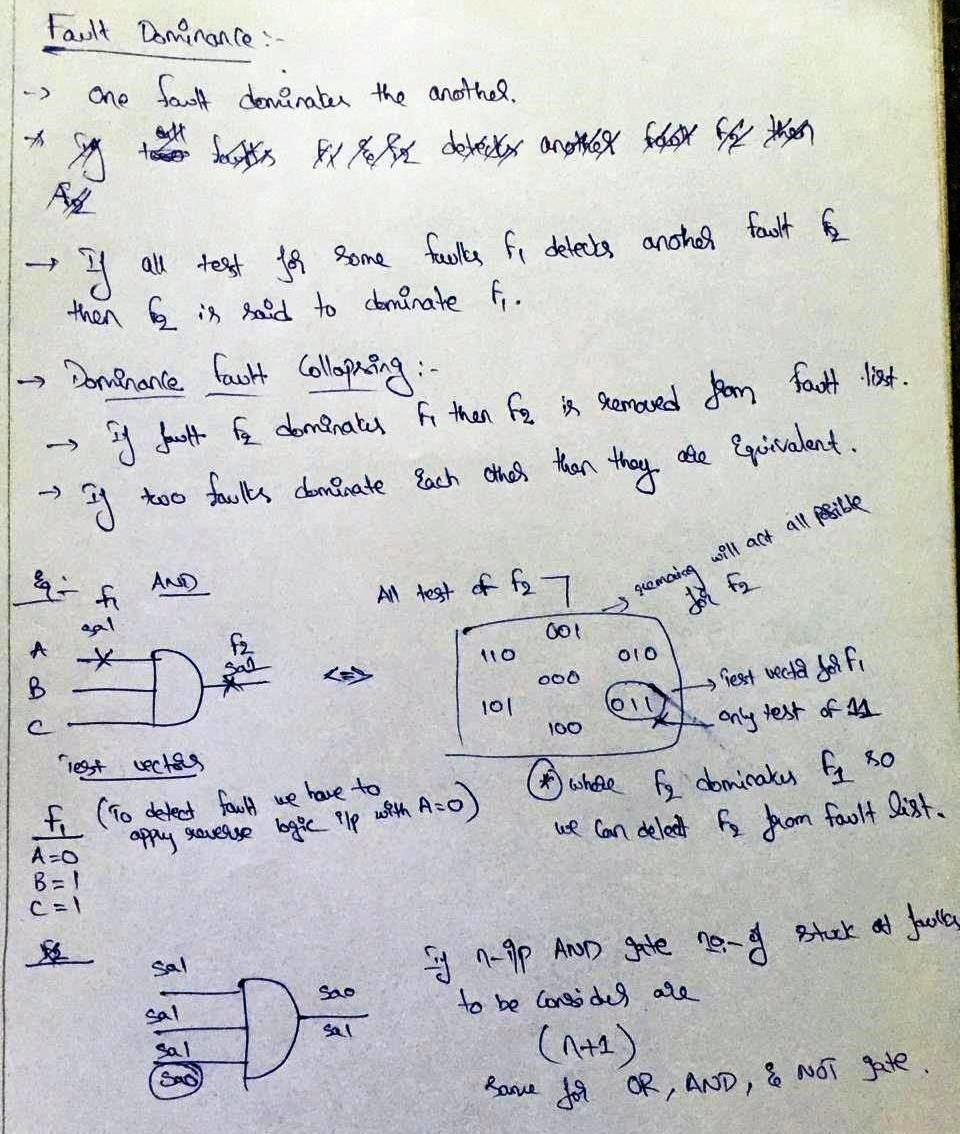 Fault Dominance :-
-> One fault dominates the another.
-> If all test for some faults f1 detects another fault f2
then f2 is said to dominate f1.
-> Dominance fault Collapsing :-
-> If fault f2 dominates f1 then f2 is removed from fault list.
-> If two faults dominate Each other then they are Equivalent.
Eg :- f1 AND
sa1
A
B
C
f2
sa1
<=>
All test of f2
remaing will act all posible
for f2
001
110
010
000
101
011
100
Test vector for f1
only test of 11
Test vectors
f1 (To detect fault we have to
apply reverse logic i/p with A=0)
A=0
B=1
C=1
* where f2 dominates f1 so
we can delect f2 from fault list.
f2
sa1
sa1
sa1
sa0
sa0
sa1
If n-i/p AND gate no:- of stuck at faults
to be consider are
(n+1)
same for OR, AND, & NOT gate.